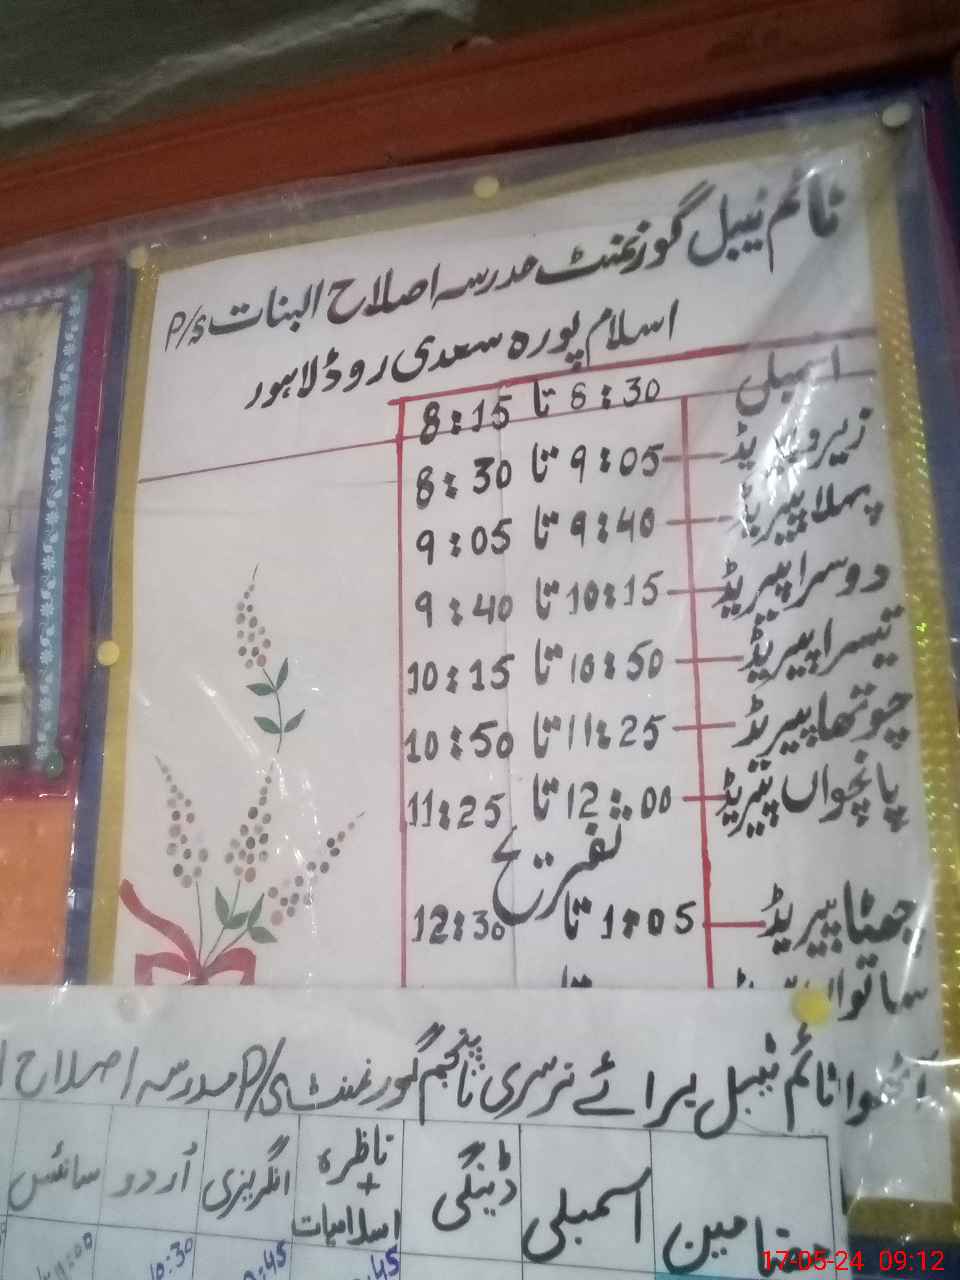 ٹائم ٹیبل گورنمنٹ مدرسہ اصلاح البنات P/S
اسلام پورہ سعدی روڈ لاہور
اسمبلی 8:30 تا 8:15
زیرو پیریڈ 9:05 تا 8:30
پہلا پیریڈ 9:40 تا 9:05
دوسرا پیریڈ 10:15 تا 9:40
تیسرا پیریڈ 10:50 تا 10:15
چوتھا پیریڈ 11:25 تا 10:50
پانچواں پیریڈ 12:00 تا 11:25
تفریح
چھٹا پیریڈ 1:05 تا 12:30
ساتواں
ٹائم ٹیبل برائے نرسری تا پنجم گورنمنٹ P/S مدرسہ اصلاح
مضامین اسمبلی ڈینگی ناظرہ + اسلامیات انگریزی اُردو سائنس
10:30
17-05-24 09:12